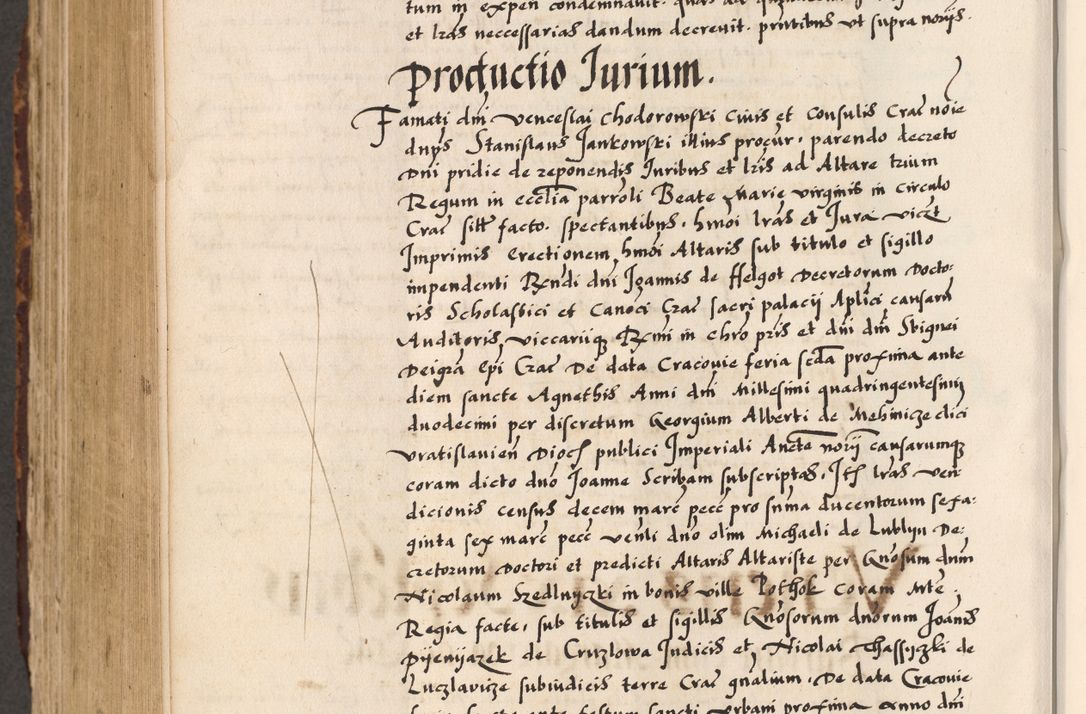 tum in expen condemnavit. quas ad
et lras neccessarias dandum decrevit. pntibus ut supra norijs.
Productio Iurium.
Famati dni Venceslai Chodorowski Civis et Consulis Crac noie
dnus Stanislaus Jankowski illius procur. parendo decreto
Dni pridie de reponendis Iuribus et lris ad Altare trium
Regum in ecclia parroli Beate Marie virginis in circulo
Crac sill facto. spectantibus. hmoi lras et Iura. vicet
Imprimis Erectionem hmoi Altaris sub titulo et sigillo
impendenti Rndi dni Joannis de Helgot Decretorum Docto:
ris Scholastici et Canoci Crac sacri palacij Aplici causaru
Auditoris, Viccariique Rmi in chro pris et dni dni Sbignei
Deigra Epi Crac De data Cracovie feria scda proxima ante
diem sancte Agnethis Anni dni Millesimi quadringentesimi
duodecimi per discretum Georgium Alberti de Mehinicze clici
Vratislavien Dioch publici Imperiali Aucte norij causarumque
coram dicto dno Joanne Scribam subscriptas, Ith lras Ven
dicionis census decem marc pecc pro suma ducentorum sexa:
ginta sex marc pecc venli dno olim Michaeli de Lublyn De:
cretorum Doctori et predicti Altaris Altariste per Gnosum dnum
Nicolaum Szedlnyczki in bonis ville Pothok coram Arte
Regia facte, sub titulis et sigillis Gnosorum dnorum Joanis
Pyenyazek de Cruzlowa Iudicis et Nicolai Thassyczki de
Luczlavicze subiudicis terre Crac gnalium, De data Cracovie
ante festum sancti Urbani proxima Anno dni